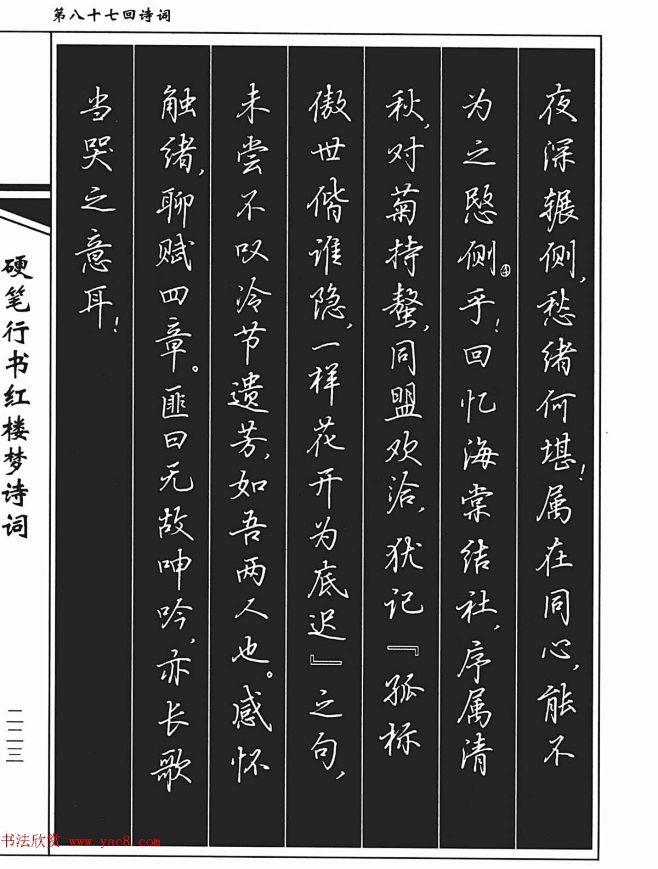 第八十七回诗词
夜深辗侧,愁绪何堪!属在同心,能不
为之愍侧④乎!回忆海棠结社,序属清
秋,对菊持螯,同盟欢洽,犹记『孤标
傲世偕谁隐,一样花开为底迟』之句,
未尝不叹冷节遗芳,如吾两人也。感怀
触绪,聊赋四章。匪曰无故呻吟,亦长歌
当哭之意耳!
硬笔行书红楼梦诗词
二二三
书法欣赏 www.yac8.com